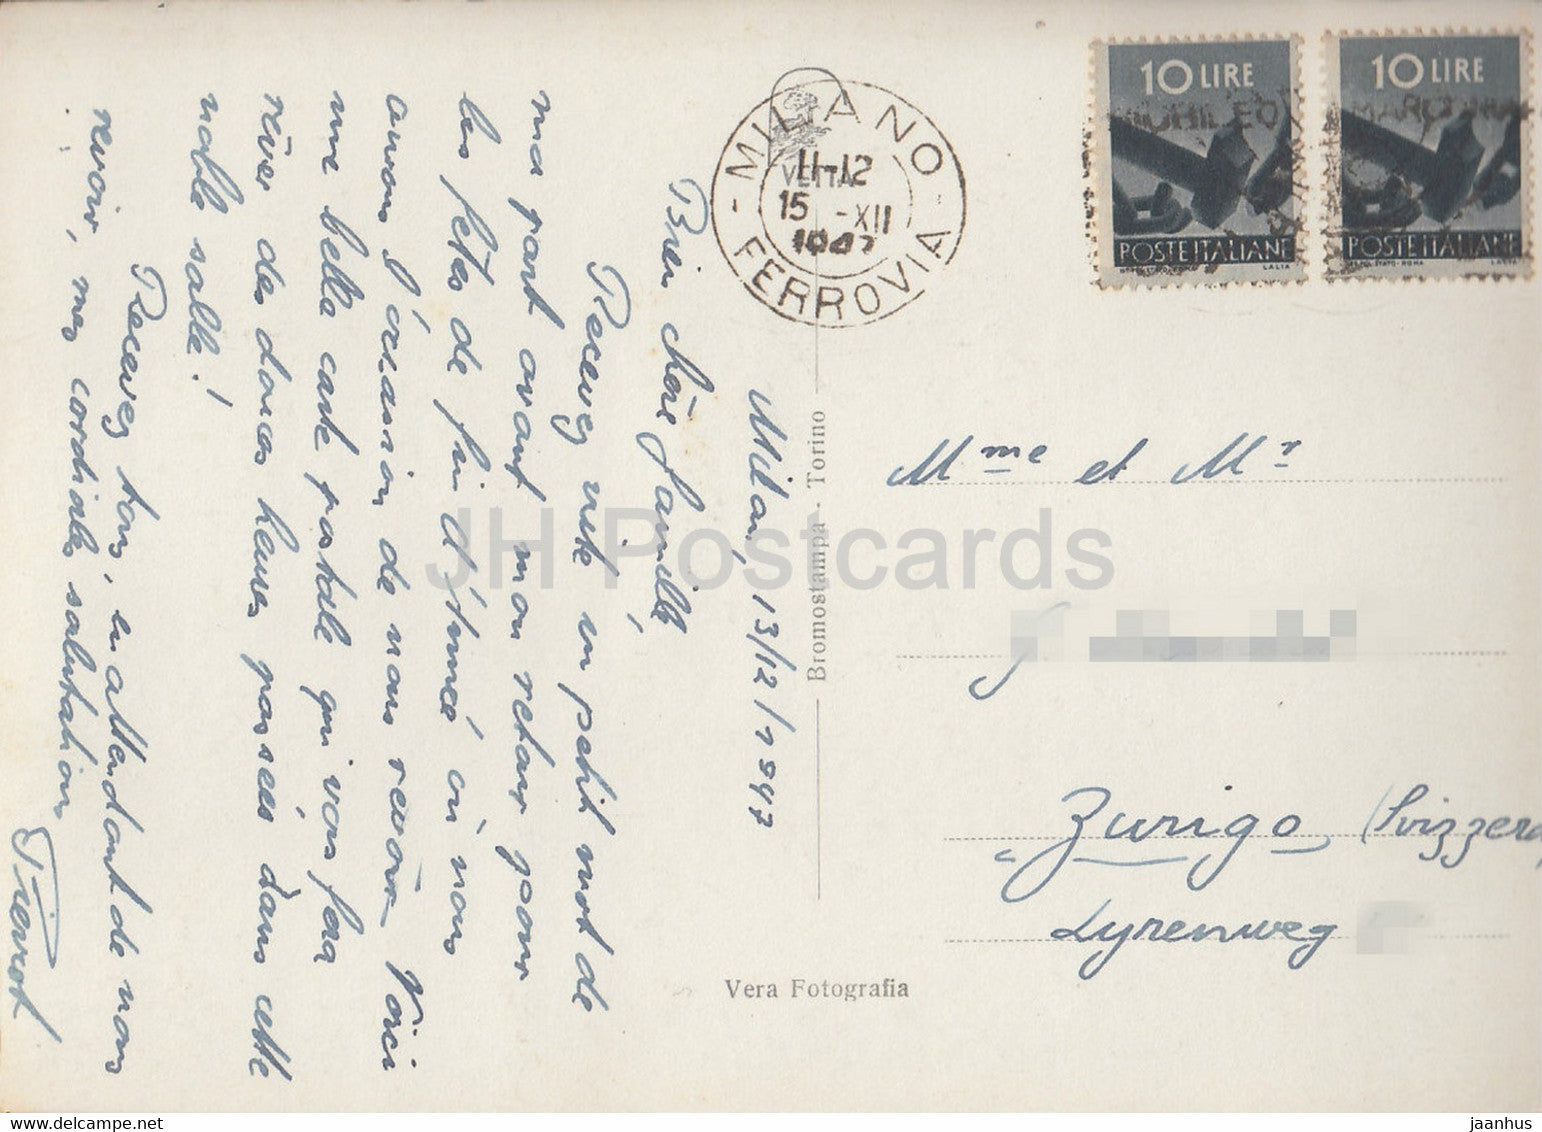 Milan, 13/12/1947
Bien chère famille,
Recevez vite un petit mot de
ma part avant mon retour pour
les fêtes de fin d'année où nous
aurons l'occasion de nous revoir. Voici
une belle carte postale qui vous fera
rêver des douces heures passées dans cette
noble salle!
Recevez tous, en attendant de nous
revoir, mes cordiales salutations
Pierrot
Bromostampa - Torino
Vera Fotografia
VETTA
MILANO
11-12
15 -XII
1947
FERROVIA
10 LIRE
POSTE ITALIANE
10 LIRE
POSTE ITALIANE
Mme et Mr
Zurigo (Svizzera
Lyrenweg
JH Postcards
www.delcampe.net
jaanhus